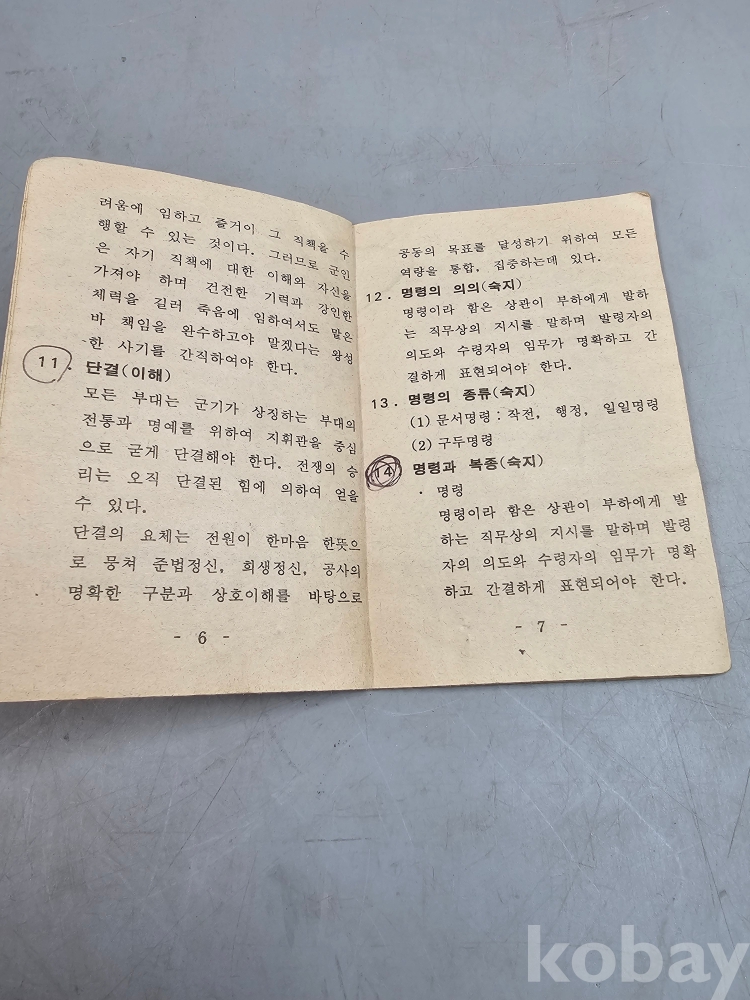 려움에 임하고 즐거이 그 직책을 수
행할 수 있는 것이다. 그러므로 군인
은 자기 직책에 대한 이해와 자신을
가져야 하며 건전한 기력과 강인한
체력을 길러 죽음에 임하여서도 맡은
바 책임을 완수하고야 말겠다는 왕성
한 사기를 간직하여야 한다.
11. 단결(이해)
모든 부대는 군기가 상징하는 부대의
전통과 명예를 위하여 지휘관을 중심
으로 굳게 단결해야 한다. 전쟁의 승
리는 오직 단결된 힘에 의하여 얻을
수 있다.
단결의 요체는 전원이 한마음 한뜻으
로 뭉쳐 준법정신, 희생정신, 공사의
명확한 구분과 상호이해를 바탕으로
- 6 -
공동의 목표를 달성하기 위하여 모든
역량을 통합, 집중하는데 있다.
12. 명령의 의의(숙지)
명령이라 함은 상관이 부하에게 발하
는 직무상의 지시를 말하며 발령자의
의도와 수령자의 임무가 명확하고 간
결하게 표현되어야 한다.
13. 명령의 종류(숙지)
(1) 문서명령 : 작전, 행정, 일일명령
(2) 구두명령
14 명령과 복종(숙지)
· 명령
명령이라 함은 상관이 부하에게 발
하는 직무상의 지시를 말하며 발령
자의 의도와 수령자의 임무가 명확
하고 간결하게 표현되어야 한다.
- 7 -
kobay